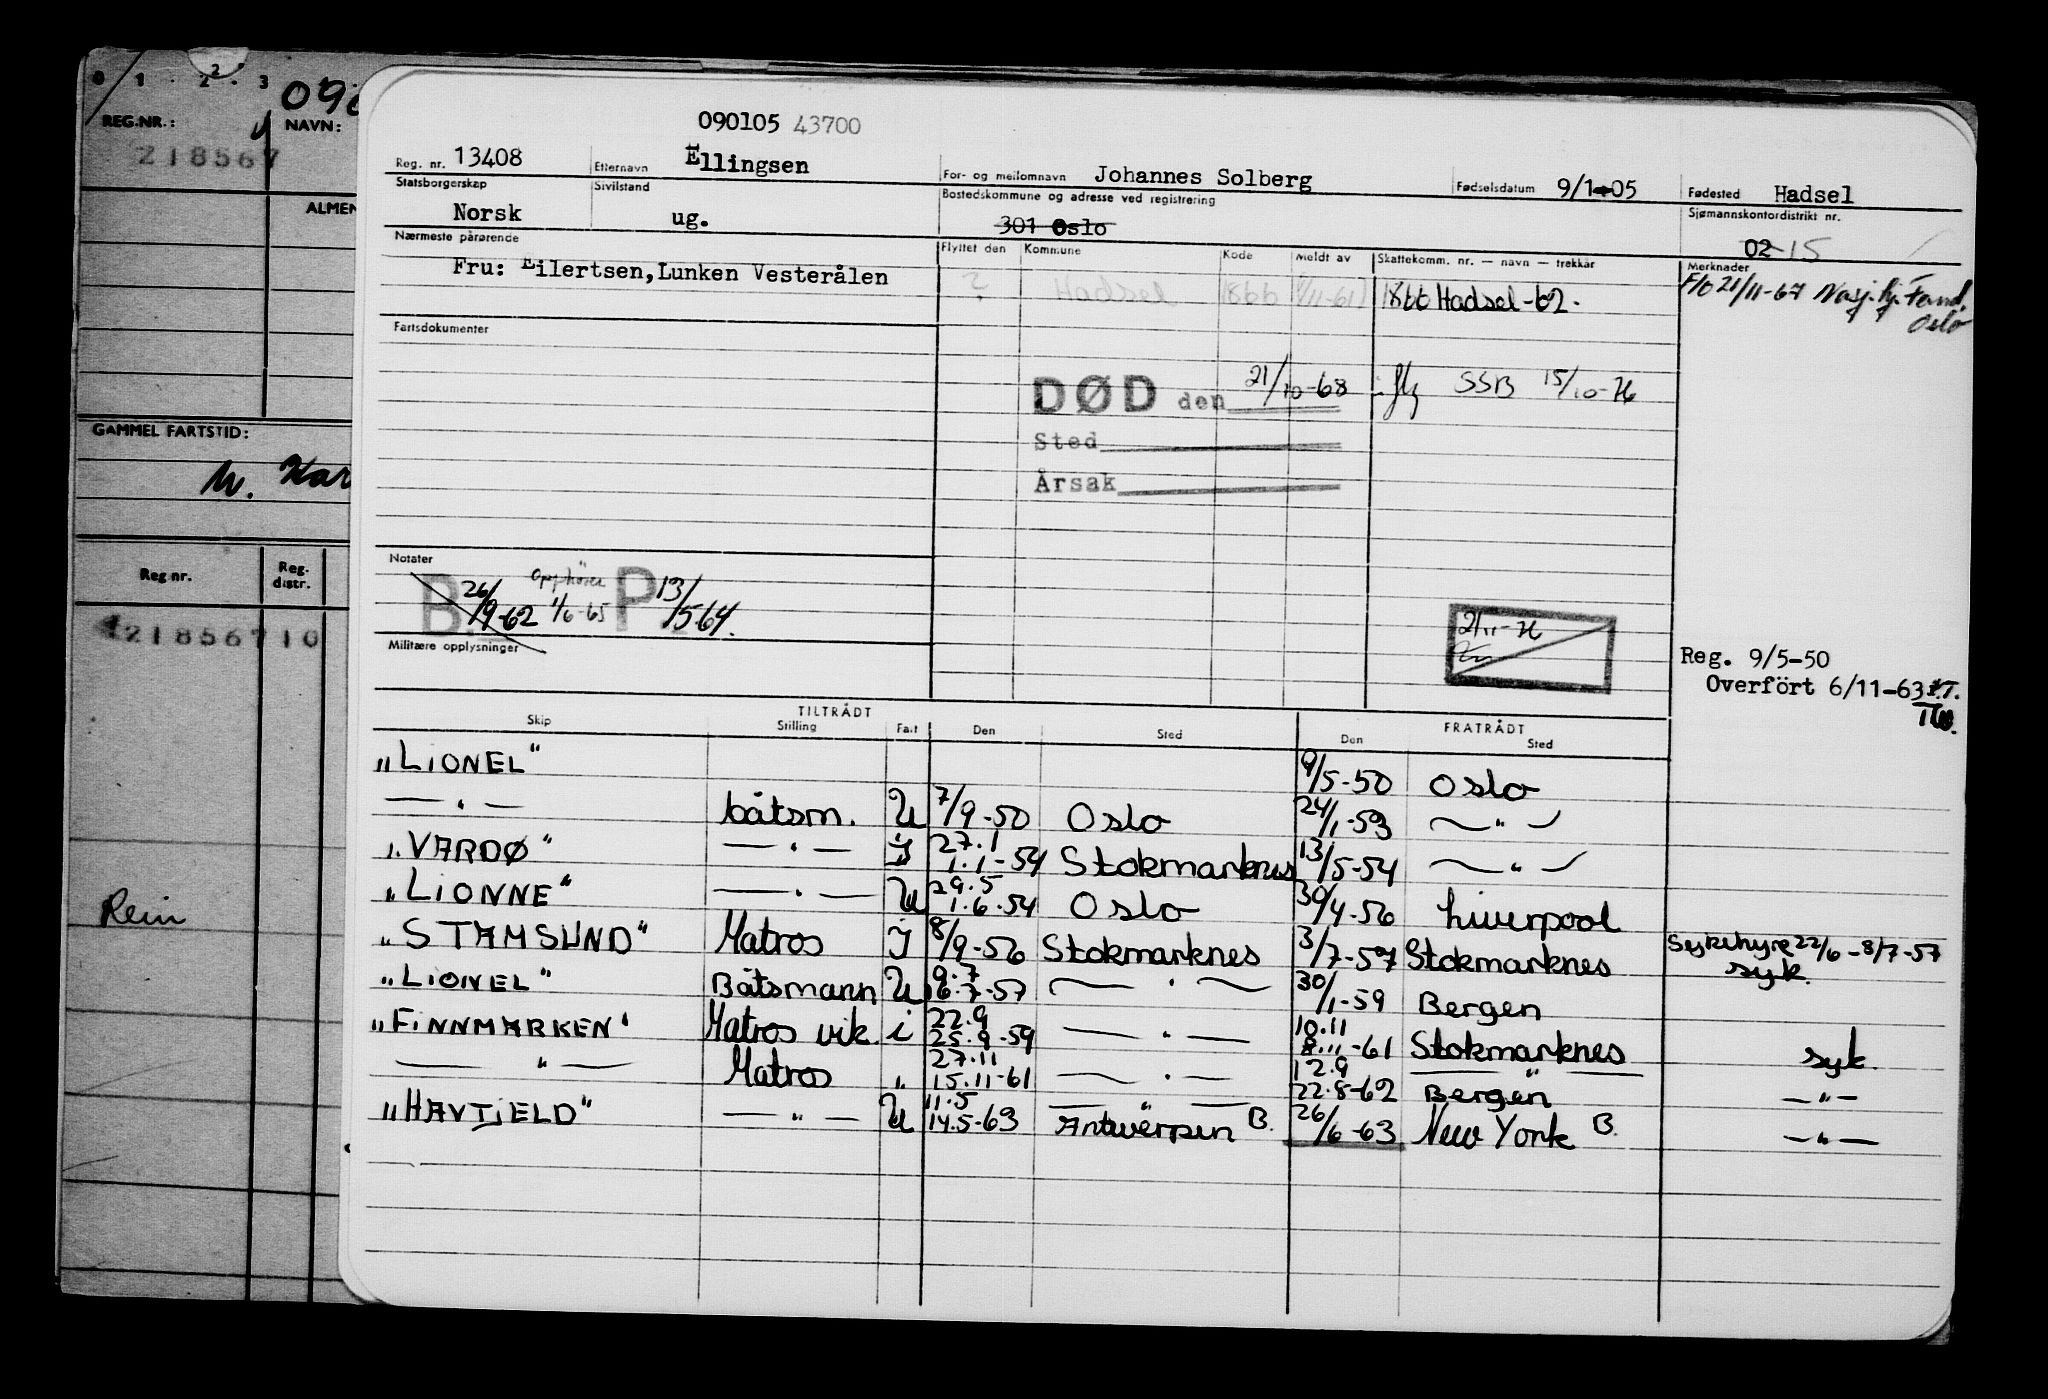 0 1 2 3
REG.NR.:
NAVN:
218567
GAMMEL FARTSTID:
Reg nr.
Reg. distr.
218567 10
Rein
090105 43700
Reg. nr. 13408 Etternavn Ellingsen For- og mellomnavn Johannes Solberg Fødselsdatum 9/1-05 Fødested Hadsel
Statsborgerskap Norsk Sivilstand ug. Bostedskommune og adresse ved registrering 301 Oslo Sjømannskontordistrikt nr. 02 15
Nærmeste pårørende
Fru: Eilertsen, Lunken Vesterålen
Flyttet den Kommune Kode Meldt av Skattekomm. nr. — navn — trekkår Merknader
? Hadsel 1866 1/11-61 1866 Hadsel -62.
F/o 21/11-67 Oslo
Fartsdokumenter
DØD den 21/10-68 SSB 15/10-76
Sted
Årsak
Notater
B. 26/9-62 Opphører 1/6-65 P 13/5-64.
Militære opplysninger
2/11-76
Reg. 9/5-50
Overfört 6/11-63
TILTRÅDT FRATRÅDT
Skip Stilling Fart Den Sted Den Sted
"LIONEL" 9/5-50 Oslo
— " — båtsm. U 7/9-50 Oslo 24/1-53 — " —
"VARDØ" — " — I 27.1 1.1-54 Stokmarknes 13/5-54 — " —
"LIONNE" — " — U 29.5 1.6-54 Oslo 30/4-56 Liverpool
"STAMSUND" Matros I 8/9-56 Stokmarknes 3/7-57 Stokmarknes Sykehyre 22/6-8/7-57 syk.
"LIONEL" Båtsmann U 9.7 16.7-57 — " — 30/1-59 Bergen
"FINNMARKEN" Matros vik. i 22.9 25.9-59 — " — 10.11 8.11-61 Stokmarknes syk.
— " — Matros " 27.11 15.11-61 — " — 12.9 22.8-62 — " — Bergen — " —
"HAVTJELD" — " — U 11.5 14.5-63 — " — Antwerpen B. 26/6-63 New York B. — " —